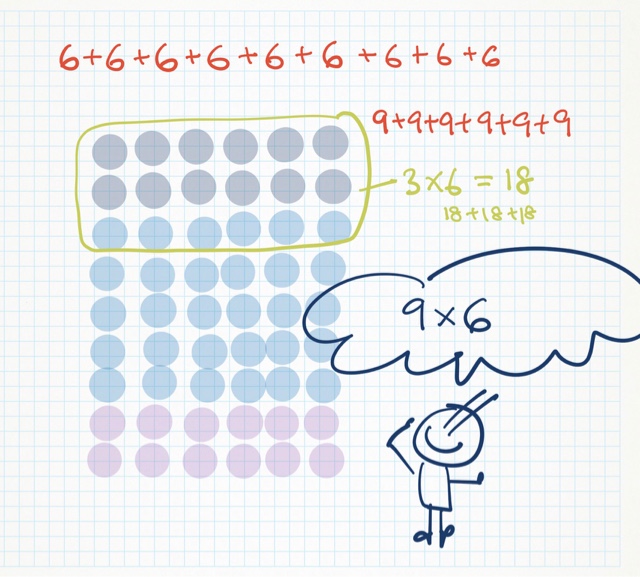 6+6+6+6+6+6+6+6+6
9+9+9+9+9+9
3×6=18
18+18+18
9×6